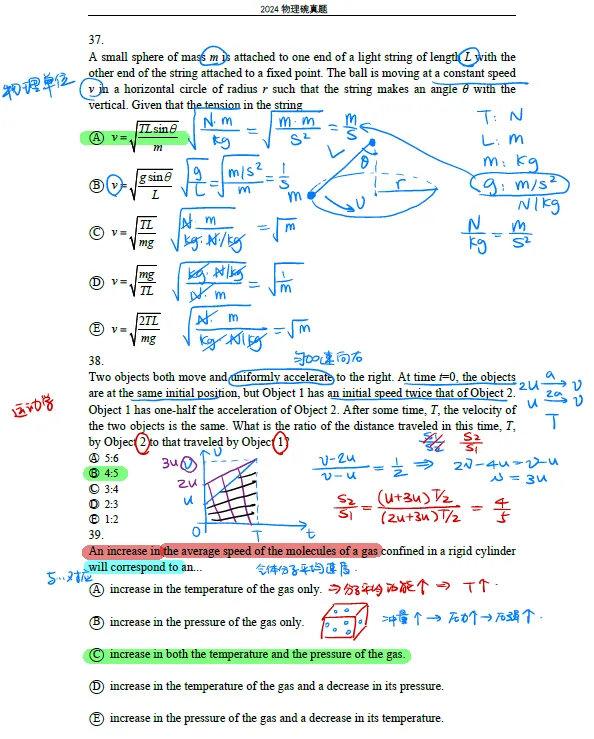 2024 物理碗真题
37.
A small sphere of mass m is attached to one end of a light string of length L with the
other end of the string attached to a fixed point. The ball is moving at a constant speed
v in a horizontal circle of radius r such that the string makes an angle θ with the
vertical. Given that the tension in the string
物理单位
Ⓐ v = √(TL sinθ / m) √(N·m / kg) = √(m·m / s²) = m/s
Ⓑ v = √(g sinθ / L) √(g / L) = √(m/s² / m) = 1/s
Ⓒ v = √(TL / mg) √(N·m / kg·N/kg) = √m
Ⓓ v = √(mg / TL) √(kg·N/kg / N·m) = √(1/m)
Ⓔ v = √(2TL / mg) √(N·m / kg·N/kg) = √m
L θ r m v
T: N
L: m
m: kg
g: m/s²
N/kg
N/kg = m/s²
38.
匀加速向右
Two objects both move and uniformly accelerate to the right. At time t=0, the objects
are at the same initial position, but Object 1 has an initial speed twice that of Object 2.
Object 1 has one-half the acceleration of Object 2. After some time, T, the velocity of
the two objects is the same. What is the ratio of the distance traveled in this time, T,
by Object 2 to that traveled by Object 1?
运动学
2u a→ v
u 2a→ v
T
S1/S2 S2/S1
Ⓐ 5:6
Ⓑ 4:5
Ⓒ 3:4
Ⓓ 2:3
Ⓔ 1:2
3u v v
2u
u
O T t
(v-2u)/(v-u) = 1/2 ⇒ 2v-4u = v-u
v = 3u
S2/S1 = (u+3u)T/2 / (2u+3u)T/2 = 4/5
39.
An increase in the average speed of the molecules of a gas confined in a rigid cylinder
will correspond to an...
与...对应
气体分子平均速度.
Ⓐ increase in the temperature of the gas only. ⇒ 分子平均动能↑ ⇒ T↑.
Ⓑ increase in the pressure of the gas only. 冲量↑ → 压力↑ → 压强↑.
Ⓒ increase in both the temperature and the pressure of the gas.
Ⓓ increase in the temperature of the gas and a decrease in its pressure.
Ⓔ increase in the pressure of the gas and a decrease in its temperature.